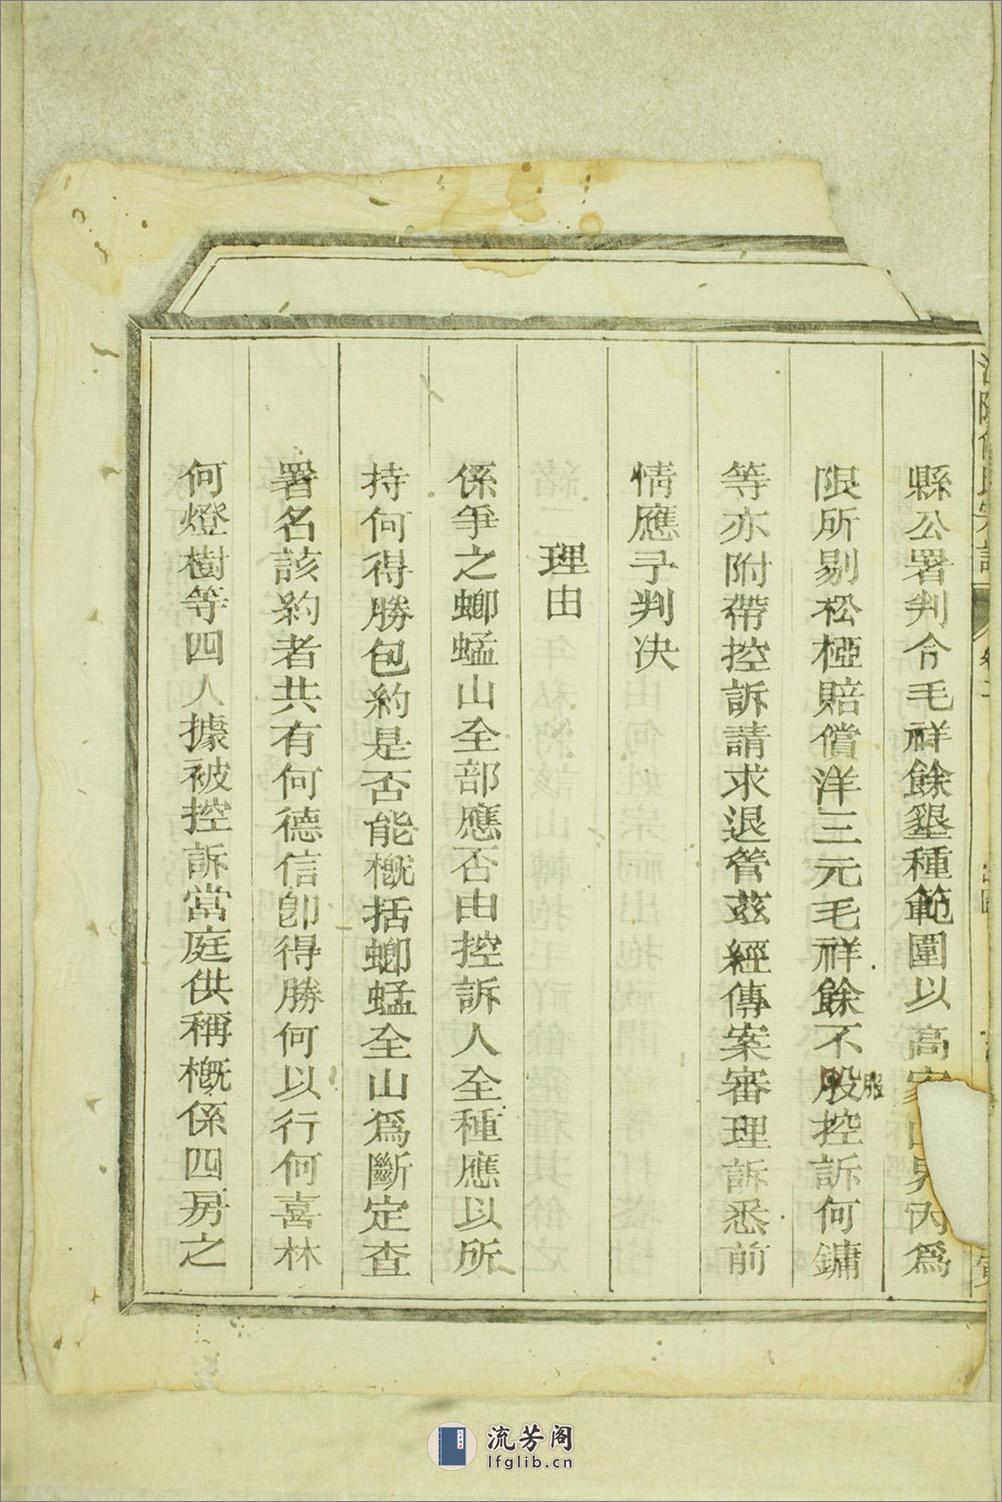 縣公署判令毛祥餘墾種範圍以高家山界內爲
限所剔松椏賠償洋三元毛祥餘不股服控訴何鏞
等亦附帶控訴請求退管茲經傳案審理訴悉前
情應予判决
理由
係爭之螂蜢山全部應否由控訴人全種應以所
持何得勝包約是否能概括螂蜢全山爲斷定查
署名該約者共有何德信卽得勝何以行何喜林
何燈樹等四人據被控訴當庭供稱概係四房之
流芳阁
lfglib.cn